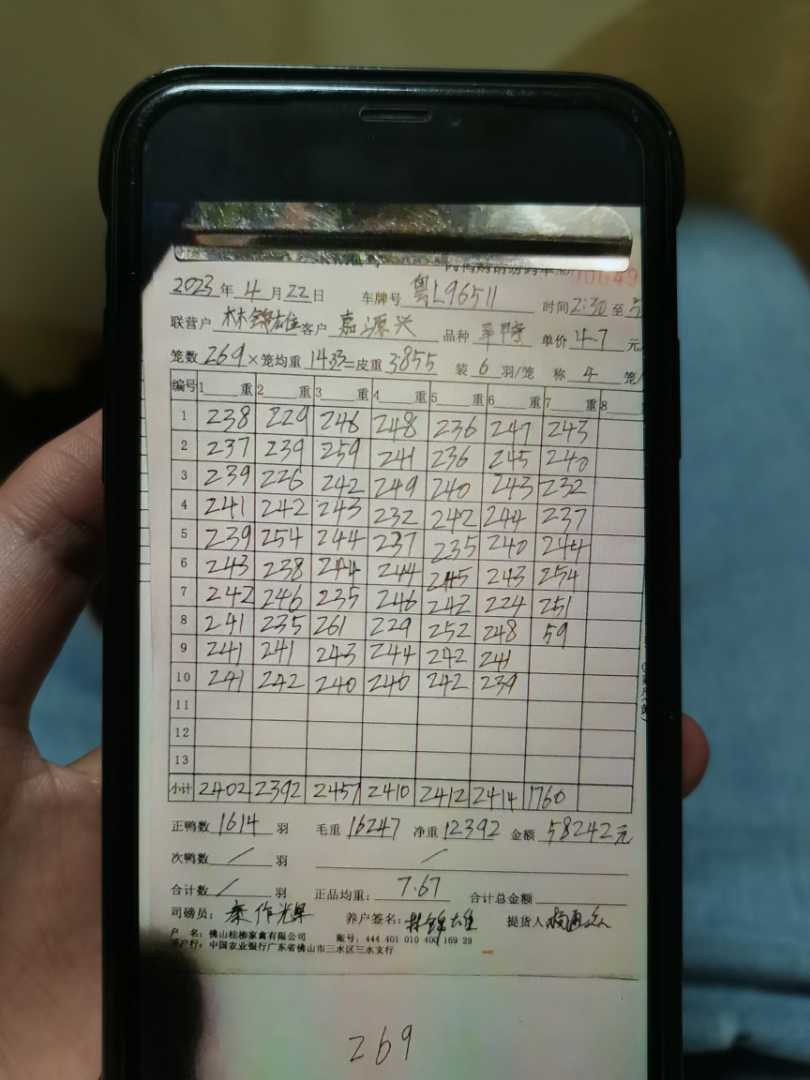 00049
2023年 4月22日 车牌号 粤L96511 时间2:30至
联营户 林锦雄 客户 嘉源兴 品种 单价 4.7 元
笼数 269 × 笼均重 14.33 = 皮重 3855 装 6 羽/笼 称 4 笼/
编号 1 重 2 重 3 重 4 重 5 重 6 重 7 重 8
1 238 229 246 248 236 247 243
2 237 239 259 241 236 245 240
3 239 226 242 249 240 243 232
4 241 242 243 232 242 244 237
5 239 254 244 237 235 240 244
6 243 238 244 244 245 243 254
7 242 246 235 246 242 224 251
8 241 235 261 229 252 248 59
9 241 241 243 244 242 241
10 241 242 240 240 242 239
11
12
13
小计 2402 2392 2457 2410 2412 2414 1760
正鸭数 1614 羽 毛重 16247 净重 12392 金额 58242元
次鸭数 / 羽 /
合计数 / 羽 正品均重: 7.67 合计总金额
司磅员: 养户签名: 林锦雄 提货人
户 名: 佛山桂柳家禽有限公司 账号: 444 401 010 400 169 29
开户行: 中国农业银行广东省佛山市三水区三水支行
269